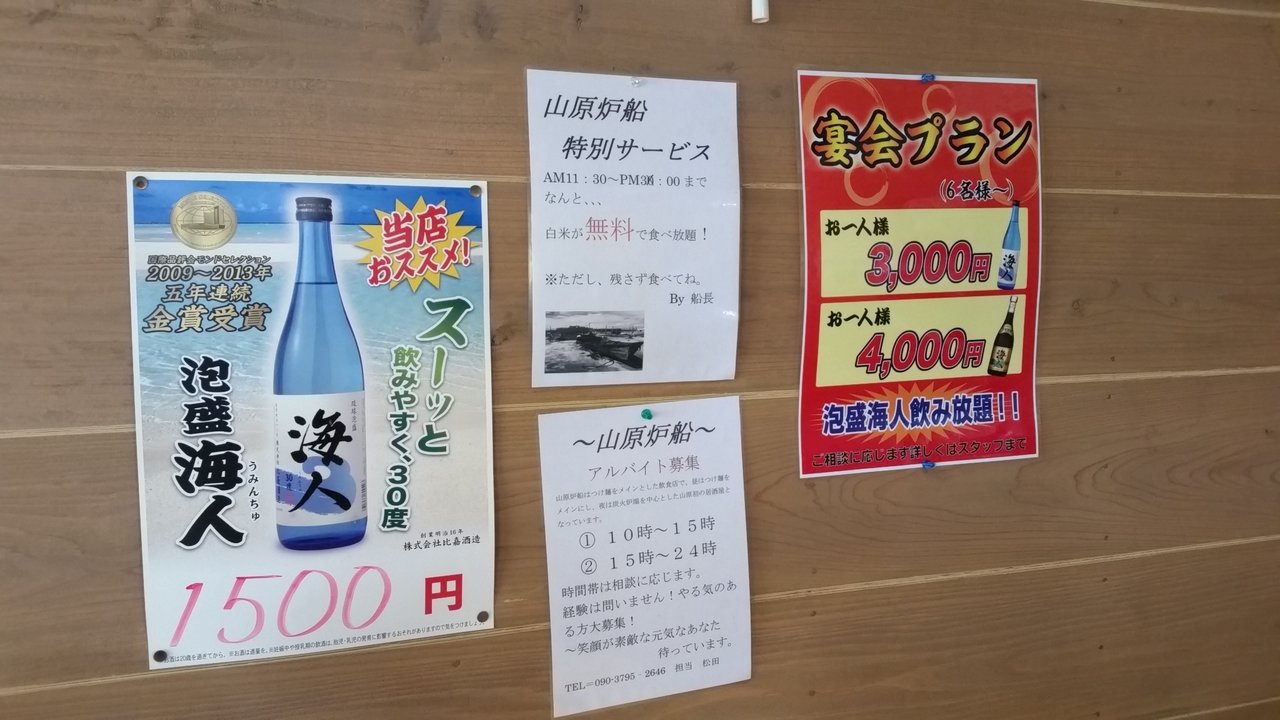 国際品評会モンドセレクション
2009～2013年
五年連続
金賞受賞
当店
おススメ!
スーッと
飲みやすく、30度
泡盛海人
うみんちゅ
琉球泡盛
海人
30度
創業明治16年
株式会社比嘉酒造
1500円
お酒は20歳を過ぎてから。※お酒は適量を。※妊娠中や授乳期の飲酒は、胎児・乳児の発育に影響するおそれがありますので気をつけましょう
山原炉船
特別サービス
AM11：30～PM　：00まで
なんと、、、
白米が無料で食べ放題！
※ただし、残さず食べてね。
By 船長
～山原炉船～
アルバイト募集
山原炉船はつけ麺をメインとした飲食店で、昼はつけ麺を
メインにし、夜は炭火炉端を中心とした山原初の居酒屋と
なっています。
① １０時～１５時
② １５時～２４時
時間帯は相談に応じます。
経験は問いません！やる気のあ
る方大募集！
～笑顔が素敵な元気なあなた
待っています。
TEL＝090-3795‐2646　担当　松田
宴会プラン
(6名様～)
お一人様
3,000円
海人
お一人様
4,000円
海人
泡盛海人飲み放題！！
ご相談に応じます詳しくはスタッフまで